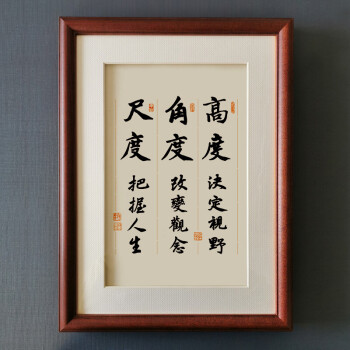 高度決定視野
角度改變觀念
尺度把握人生